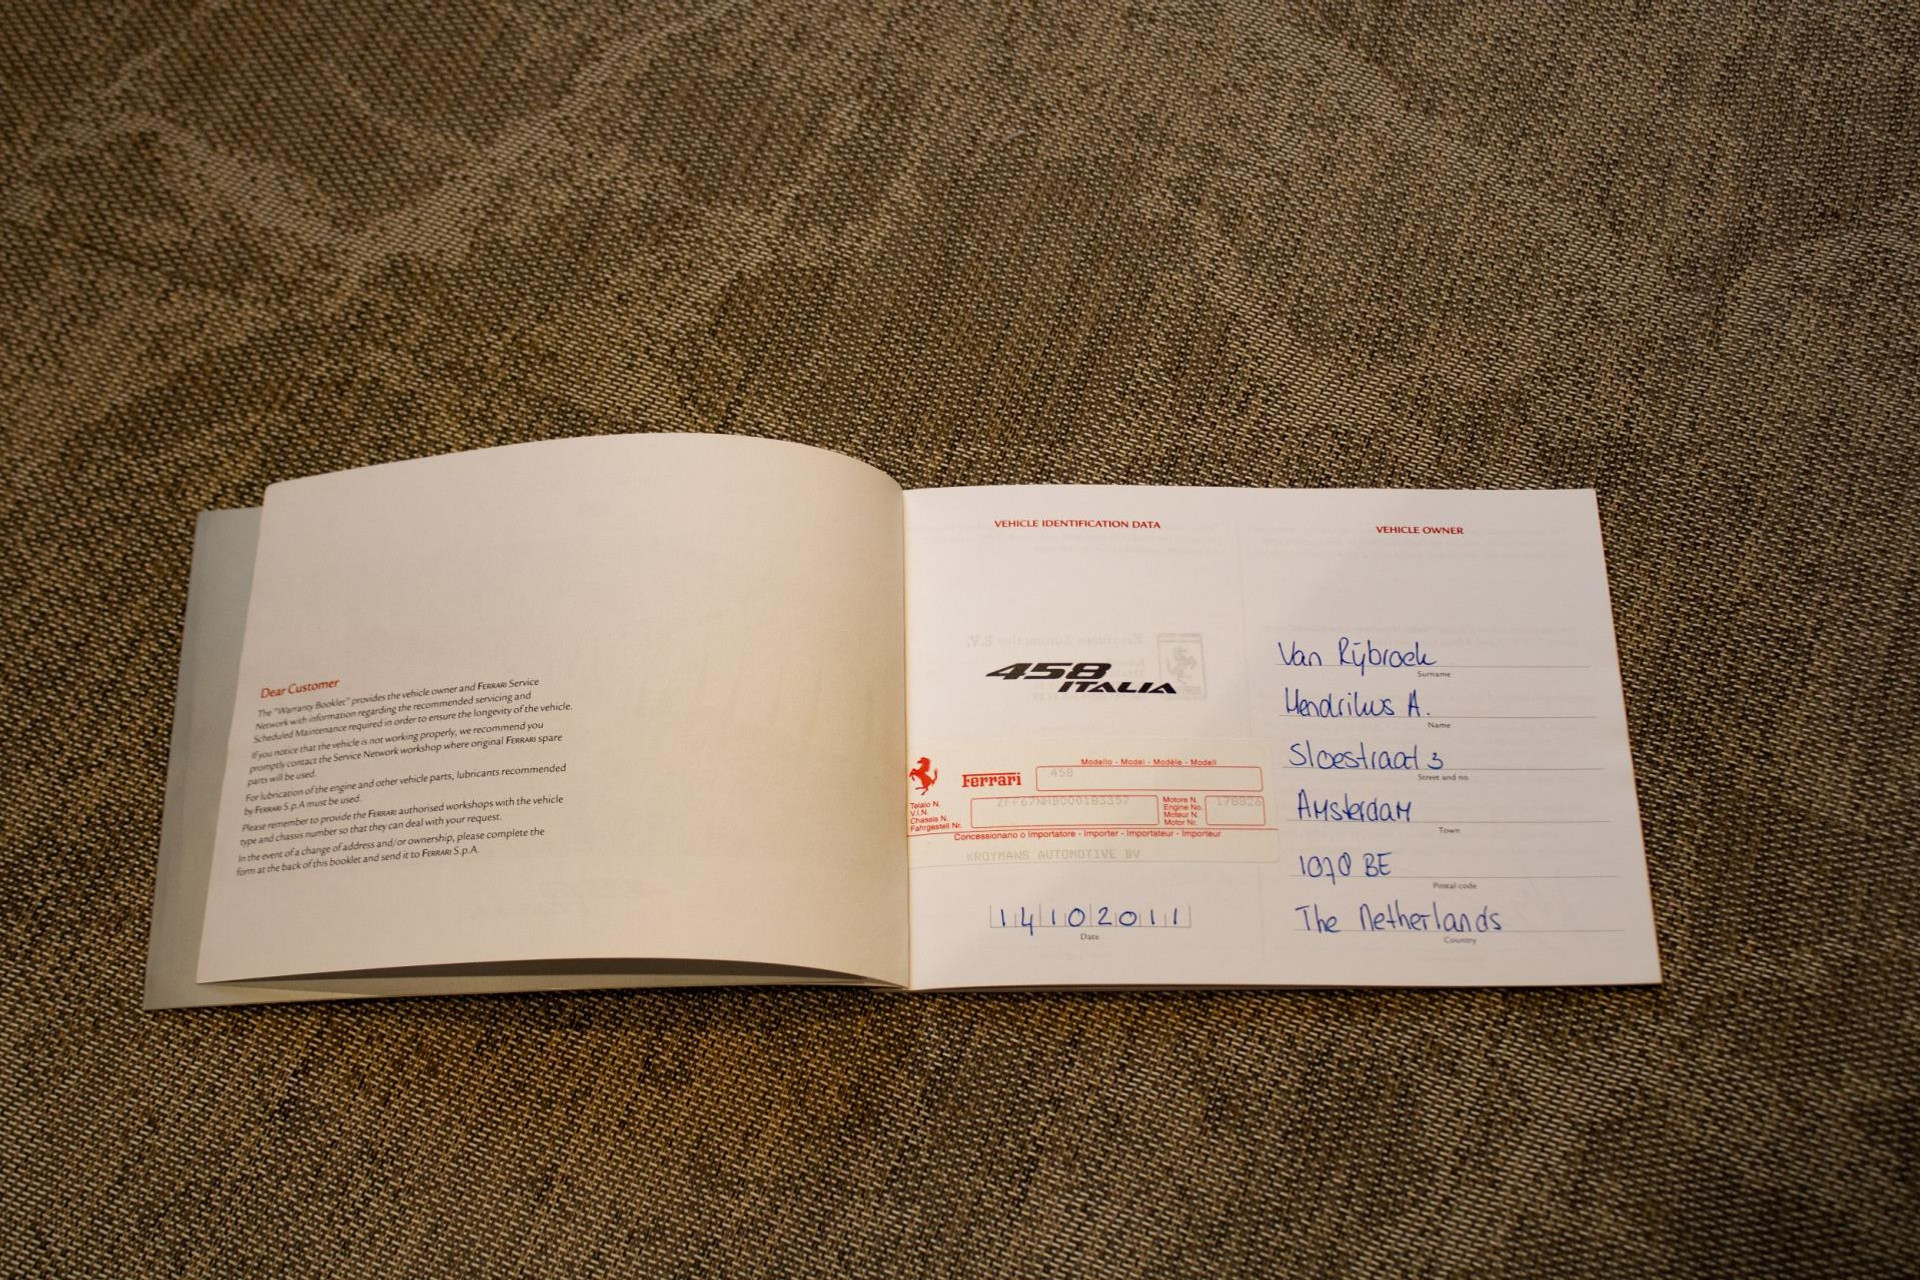 Dear Customer
The "Warranty Booklet" provides the vehicle owner and FERRARI Service
Network with information regarding the recommended servicing and
Scheduled Maintenance required in order to ensure the longevity of the vehicle.
If you notice that the vehicle is not working properly, we recommend you
promptly contact the Service Network workshop where original FERRARI spare
parts will be used.
For lubrication of the engine and other vehicle parts, lubricants recommended
by FERRARI S.p.A must be used.
Please remember to provide the FERRARI authorised workshops with the vehicle
type and chassis number so that they can deal with your request.
In the event of a change of address and/or ownership, please complete the
form at the back of this booklet and send it to FERRARI S.p.A.
VEHICLE IDENTIFICATION DATA
458
ITALIA
Modello - Model - Modèle - Modell
Ferrari
458
Telaio N.
V.I.N.
Chassis N.
Fahrgestell Nr.
ZFF67NHB000183357
Motore N.
Engine No.
Moteur N.
Motor Nr.
178826
Concessionario o Importatore - Importer - Importateur - Importeur
KROYMANS AUTOMOTIVE BV
14102011
Date
VEHICLE OWNER
Van Rijbroek
Surname
Hendrikus A.
Name
Sloestraat 3
Street and no.
Amsterdam
Town
1078 BE
Postal code
The Netherlands
Country